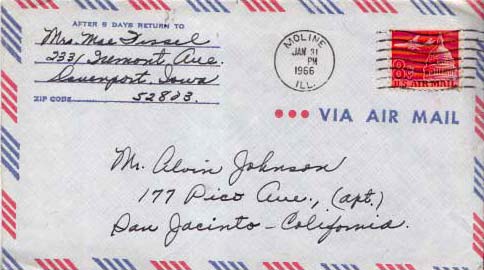 AFTER 5 DAYS RETURN TO
Mrs. Mae
2331 Tremont Ave.
Davenport, Iowa
ZIP CODE 52803.
MOLINE
JAN 31
PM
1966
ILL.
8¢
U.S. AIR MAIL
VIA AIR MAIL
Mr. Alvin Johnson
177 Pico Ave., (apt.)
San Jacinto - California.